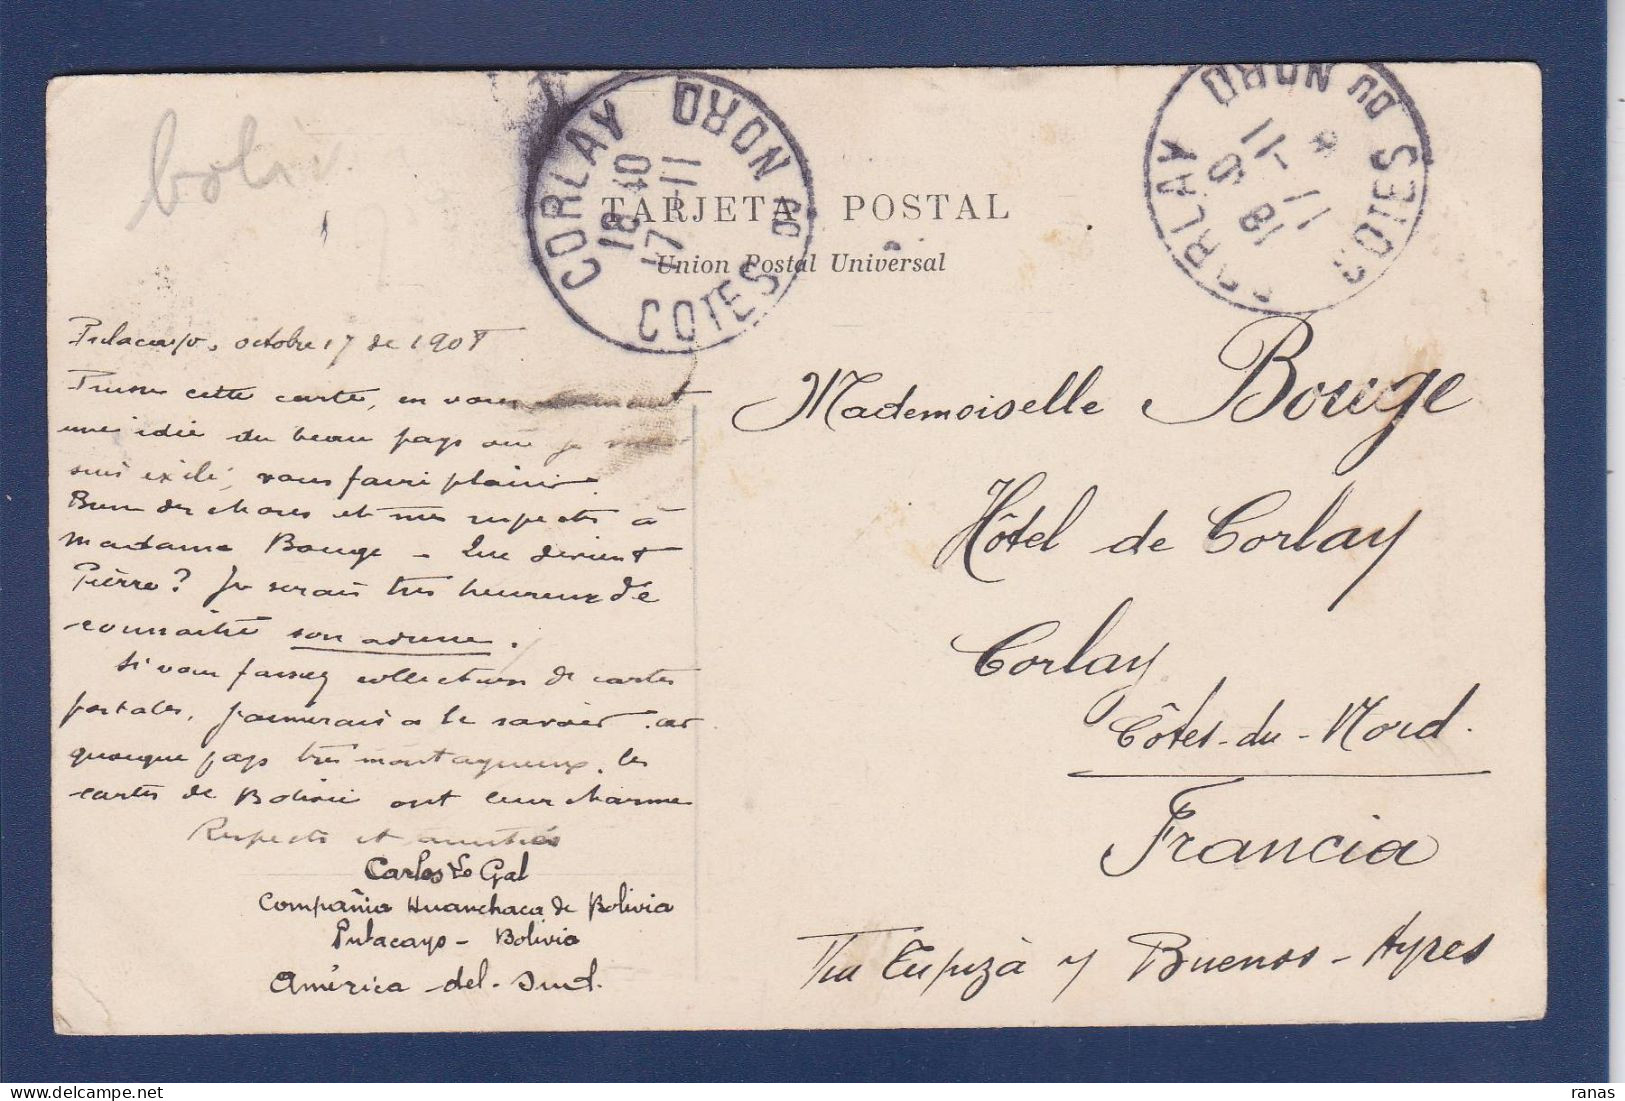 boliv.
CORLAY
18 40
17 -11
COTES DU NORD
CORLAY
18 9
11 -11
COTES DU NORD
*
TARJETA POSTAL
Union Postal Universal
Pulacayo, octobre 17 de 1908
Puisse cette carte, en vous donnant
une idée du beau pays où je
suis exilé, vous faire plaisir.
Bien des choses et mes respects à
Madame Bouge - Que devient
Pierre? Je serais très heureux de
connaître son adresse.
Si vous faisiez collection de cartes
postales, j'aimerais à le savoir, car
quoique pays très montagneux, les
cartes de Bolivie ont leur charme
Respects et amitiés
Carlos Le Gal
Compañia Huanchaca de Bolivia
Pulacayo - Bolivia
América - del - Sud.
Mademoiselle Bouge
Hôtel de Corlay
Corlay
Côtes-du-Nord.
Francia
Via Tupiza y Buenos-Ayres
ranas